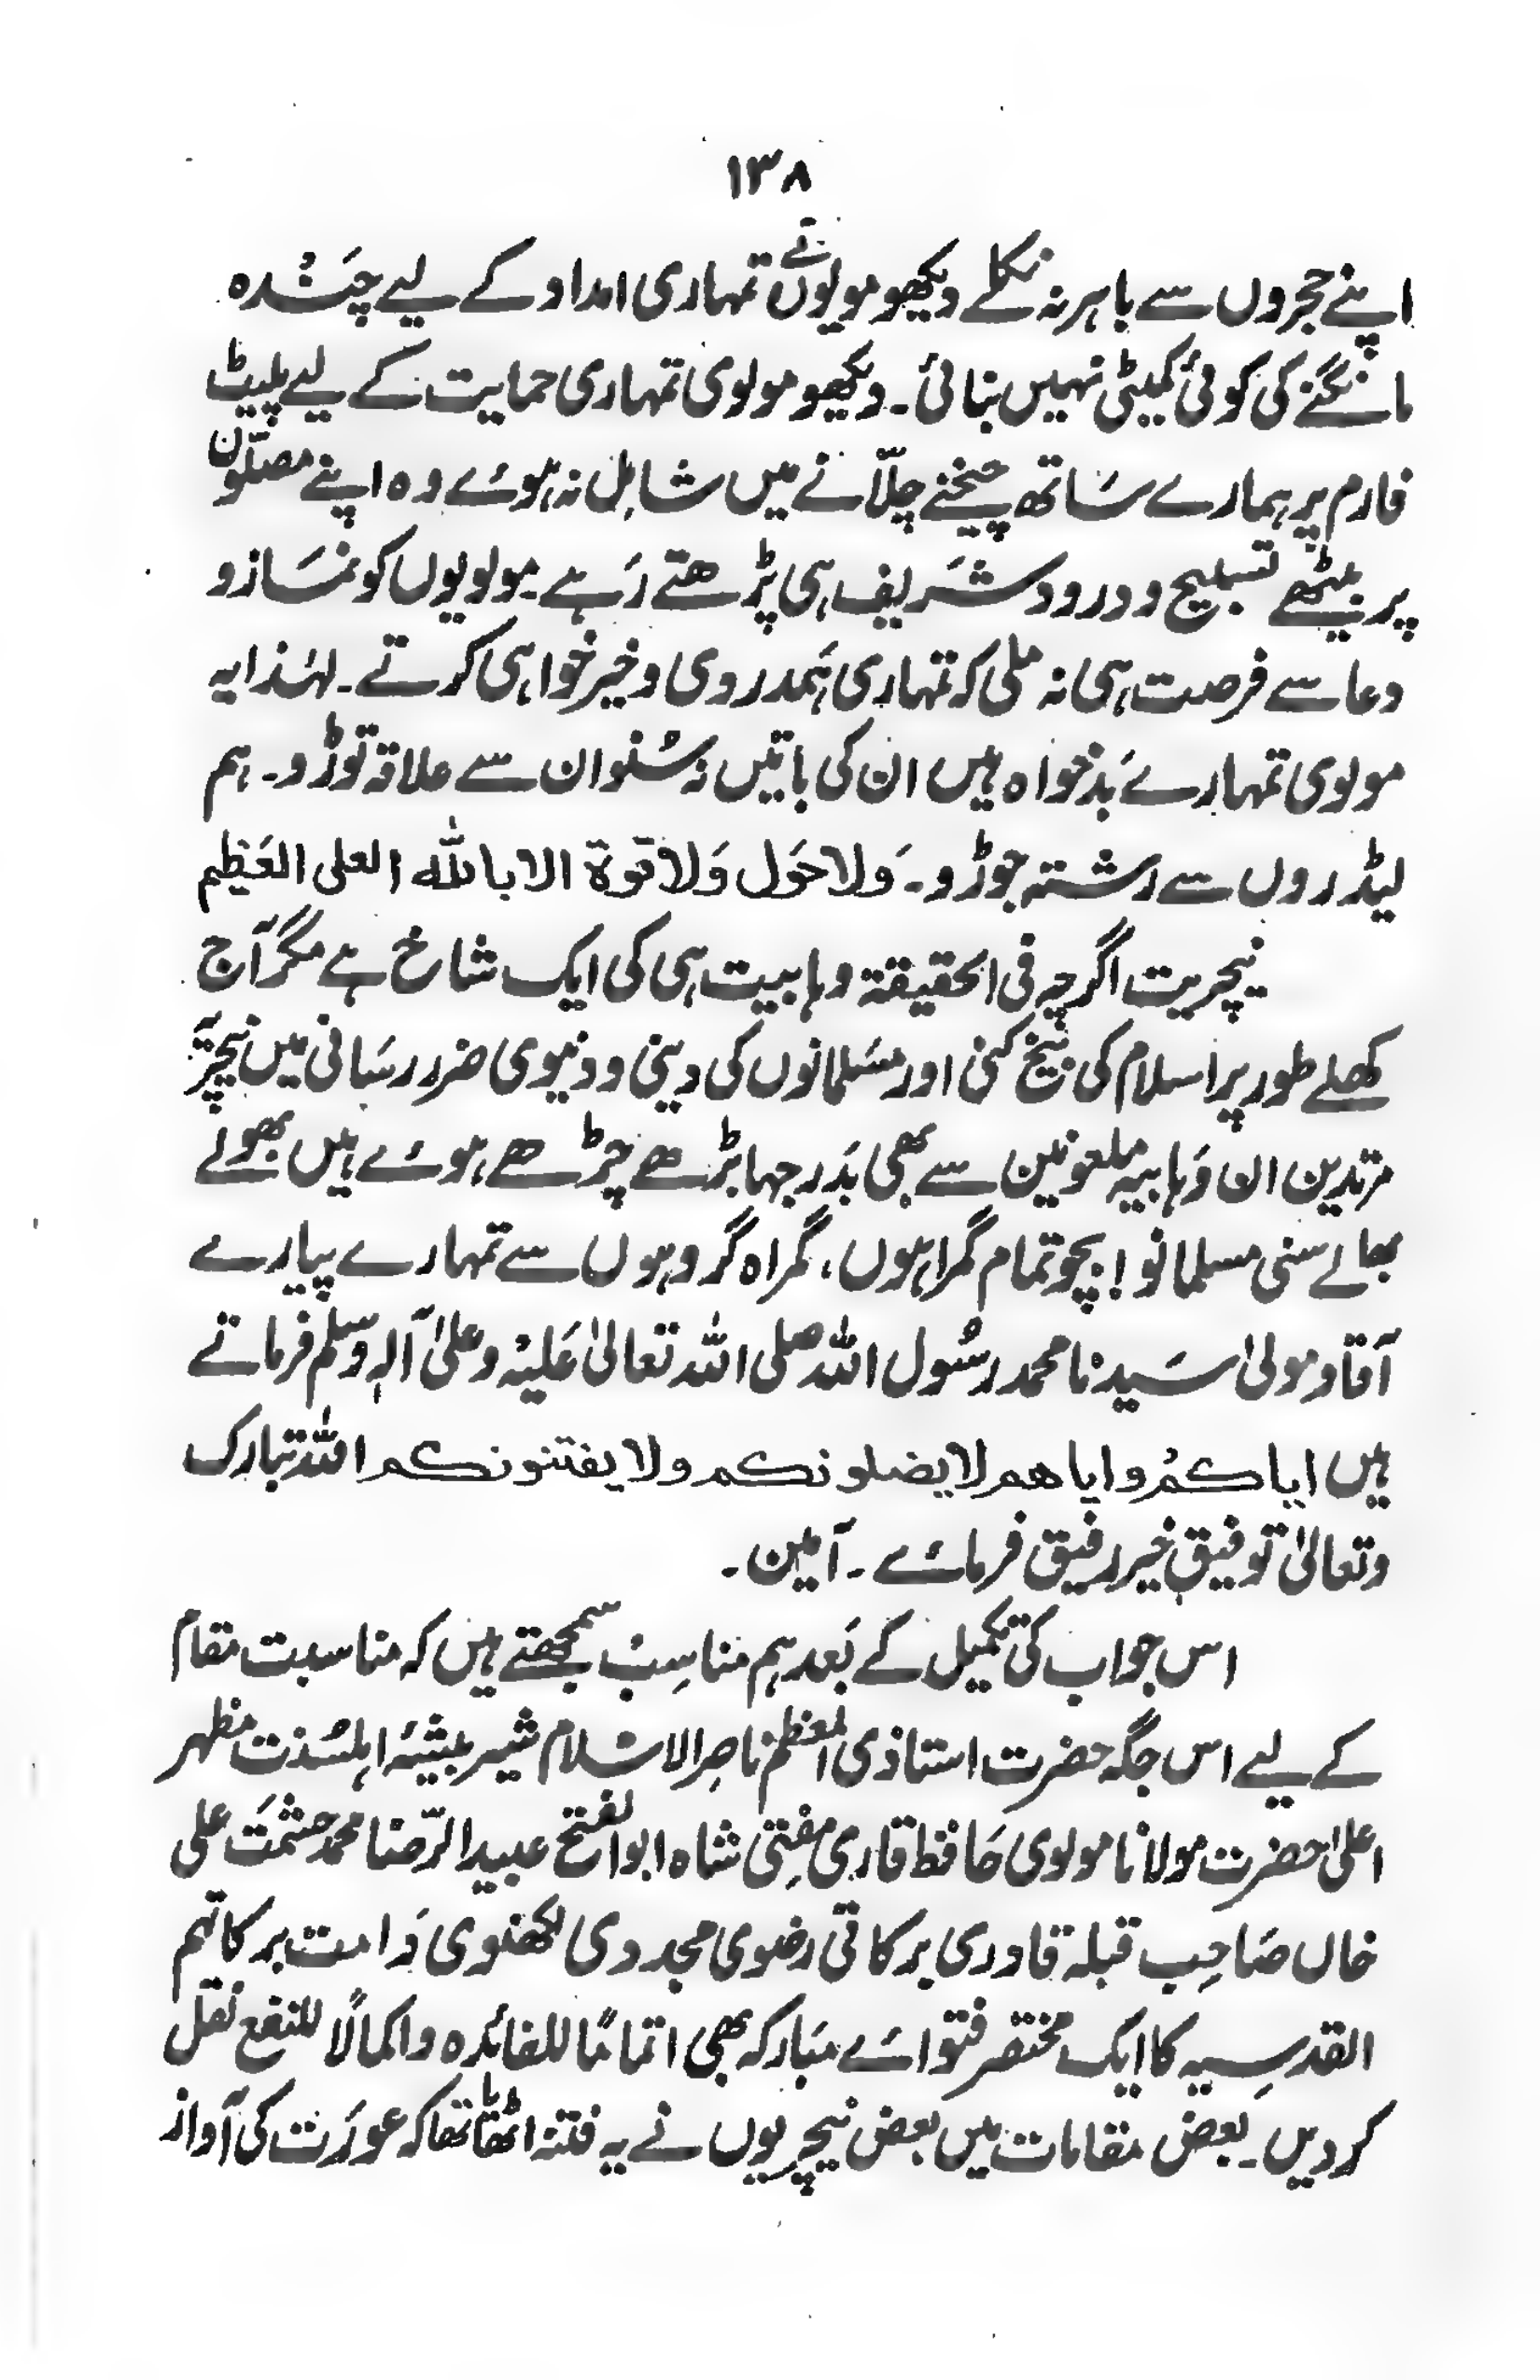 ۱۳۸
اپنے حجروں سے باہر نہ نکلے دیکھو مولیوں نے تمہاری امداد کے لیے چندہ
مانگنے کی کوئی کمیٹی نہیں بنائی۔ دیکھو مولوی تمہاری حمایت کے لیے پلیٹ
فارم پر ہمارے ساتھ چیخنے چلّانے میں شامل نہ ہوئے وہ اپنے مصلّوں
پر بیٹھے تسبیح و درود شریف ہی پڑھتے رہے۔ مولویوں کو نماز و
دعا سے فرصت ہی نہ ملی کہ تمہاری ہمدردی و خیر خواہی کرتے۔ لہٰذا یہ
مولوی تمہارے بدخواہ ہیں ان کی باتیں نہ سُنو ان سے علاقہ توڑو۔ ہم
لیڈروں سے رشتہ جوڑو۔ وَلا حَول وَلا قوة الا بالله العلی العَظیم
نیچریت اگرچہ فی الحقیقۃ وہابیت ہی کی ایک شاخ ہے مگر آج
کھلے طور پر اسلام کی بیخ کنی اور مسلمانوں کی دینی و دنیوی ضرر رسانی میں نیچریّہ
مرتدین ان وہابیہ ملعونین سے بھی بدرجہا بڑھے چڑھے ہوئے ہیں بھولے
بھالے سنی مسلمانو! بچو تمام گمراہوں، گمراہ گروہوں سے تمہارے پیارے
آقا و مولیٰ سیدنا محمد رسُول اللہ صلی اللہ تعالیٰ عَلیْہ وعلیٰ آلہٖ وسلم فرماتے
ہیں ایاکمُ وایاهم لا یضلونکم ولا یفتنونکم اللہ تبارک
وتعالیٰ توفیقِ خیر رفیق فرمائے۔ آمین۔
اس جواب کی تکمیل کے بَعد ہم مناسِب سمجھتے ہیں کہ مناسبت مقام
کے لیے اس جگہ حضرت استاذی المعظم ناصر الاسلام شیر بیشۂ اہلسُنت مظہر
اعلیٰحضرت مولانا مولوی حَافظ قاری مفتی شاہ ابوالفتح عبید الرّضا محمد حشمت علی
خاں صَاحِب قبلہ قادری برکاتی رضوی مجددی لکھنوی دَامت برکاتہم
القدسِیہ کا ایک مختصر فتوائے مبارکہ بھی اتمامًا للفائدہ واکمالًا للنفع نقل
کر دیں۔ بعض مقامات میں بعض نیچریوں نے یہ فتنہ اٹھایا تھا کہ عورَت کی آواز